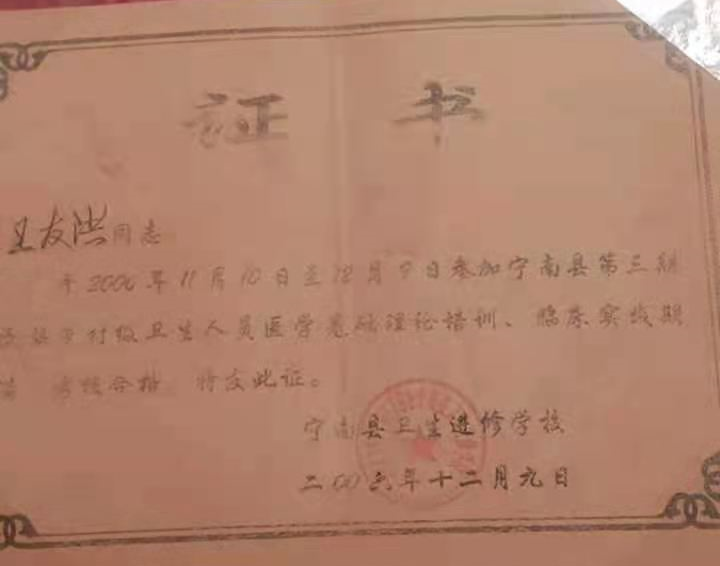 证书
王友洪同志
于2006年11月10日至12月9日参加宁南县第三期
村级卫生人员医学基础理论培训、临床实践期
考核合格 特发此证。
宁南县卫生进修学校
二00六年十二月九日